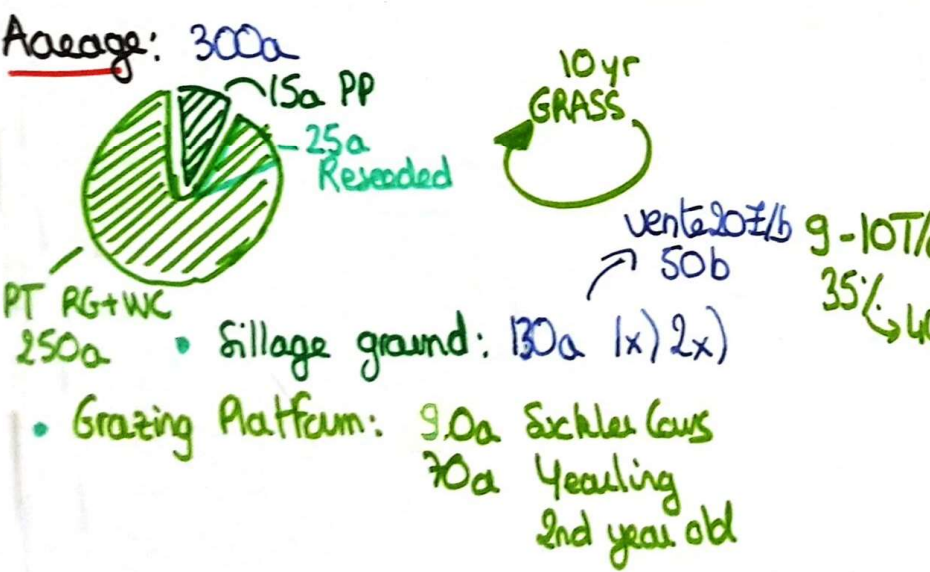 Aaeage: 300a
15a PP
25a
Reseeded
10yr
GRASS
PT RG+WC
250a
vente 20£/b
50b
9-10T/
35%
• Sillage ground: 130a 1x) 2x)
• Grazing Platfoum: 90a Suckler Cows
70a Yearling
2nd year old